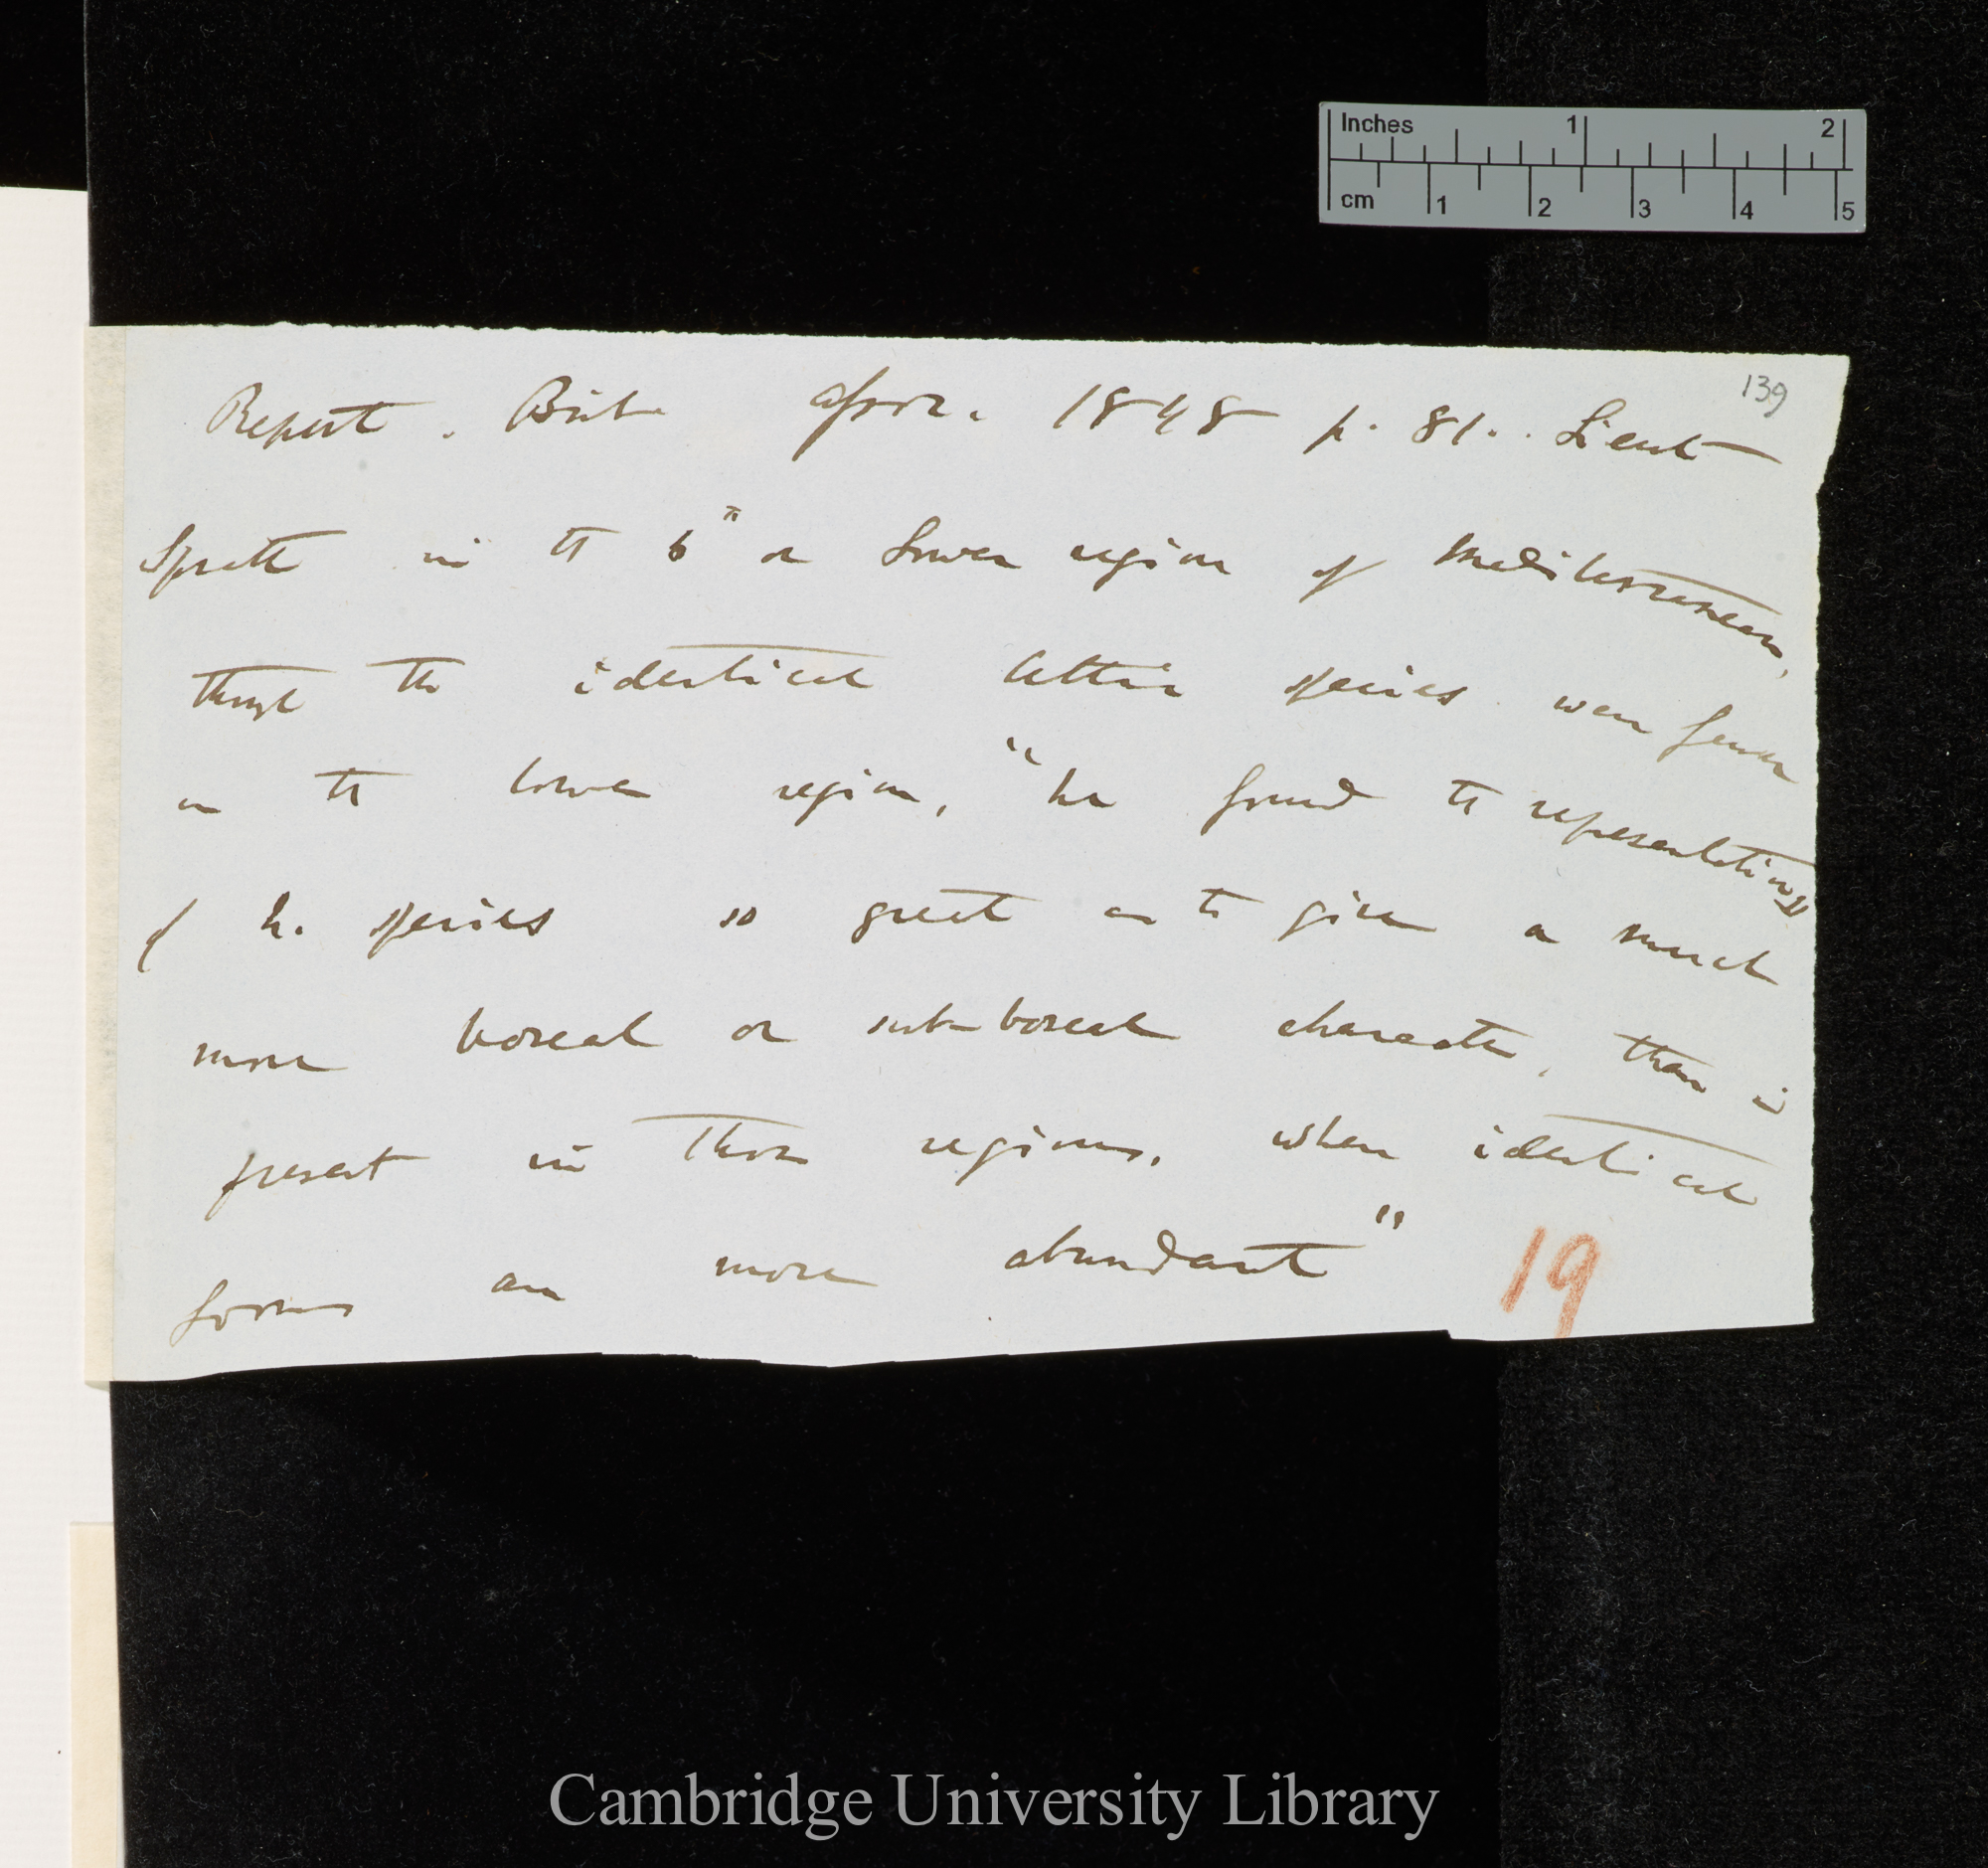 Inches 1 2
cm 1 2 3 4 5
139
Report. Brit Assoc. 1848 p. 81. Lieut
Spratt in the 6th or lower region of Mediterranean,
though the identical species were fewer
in the lower region, "he found the representations
of N. species so great as to give a much
more boreal or sub-boreal character, than is
present in those regions, where identical
forms are more abundant"
19
Cambridge University Library